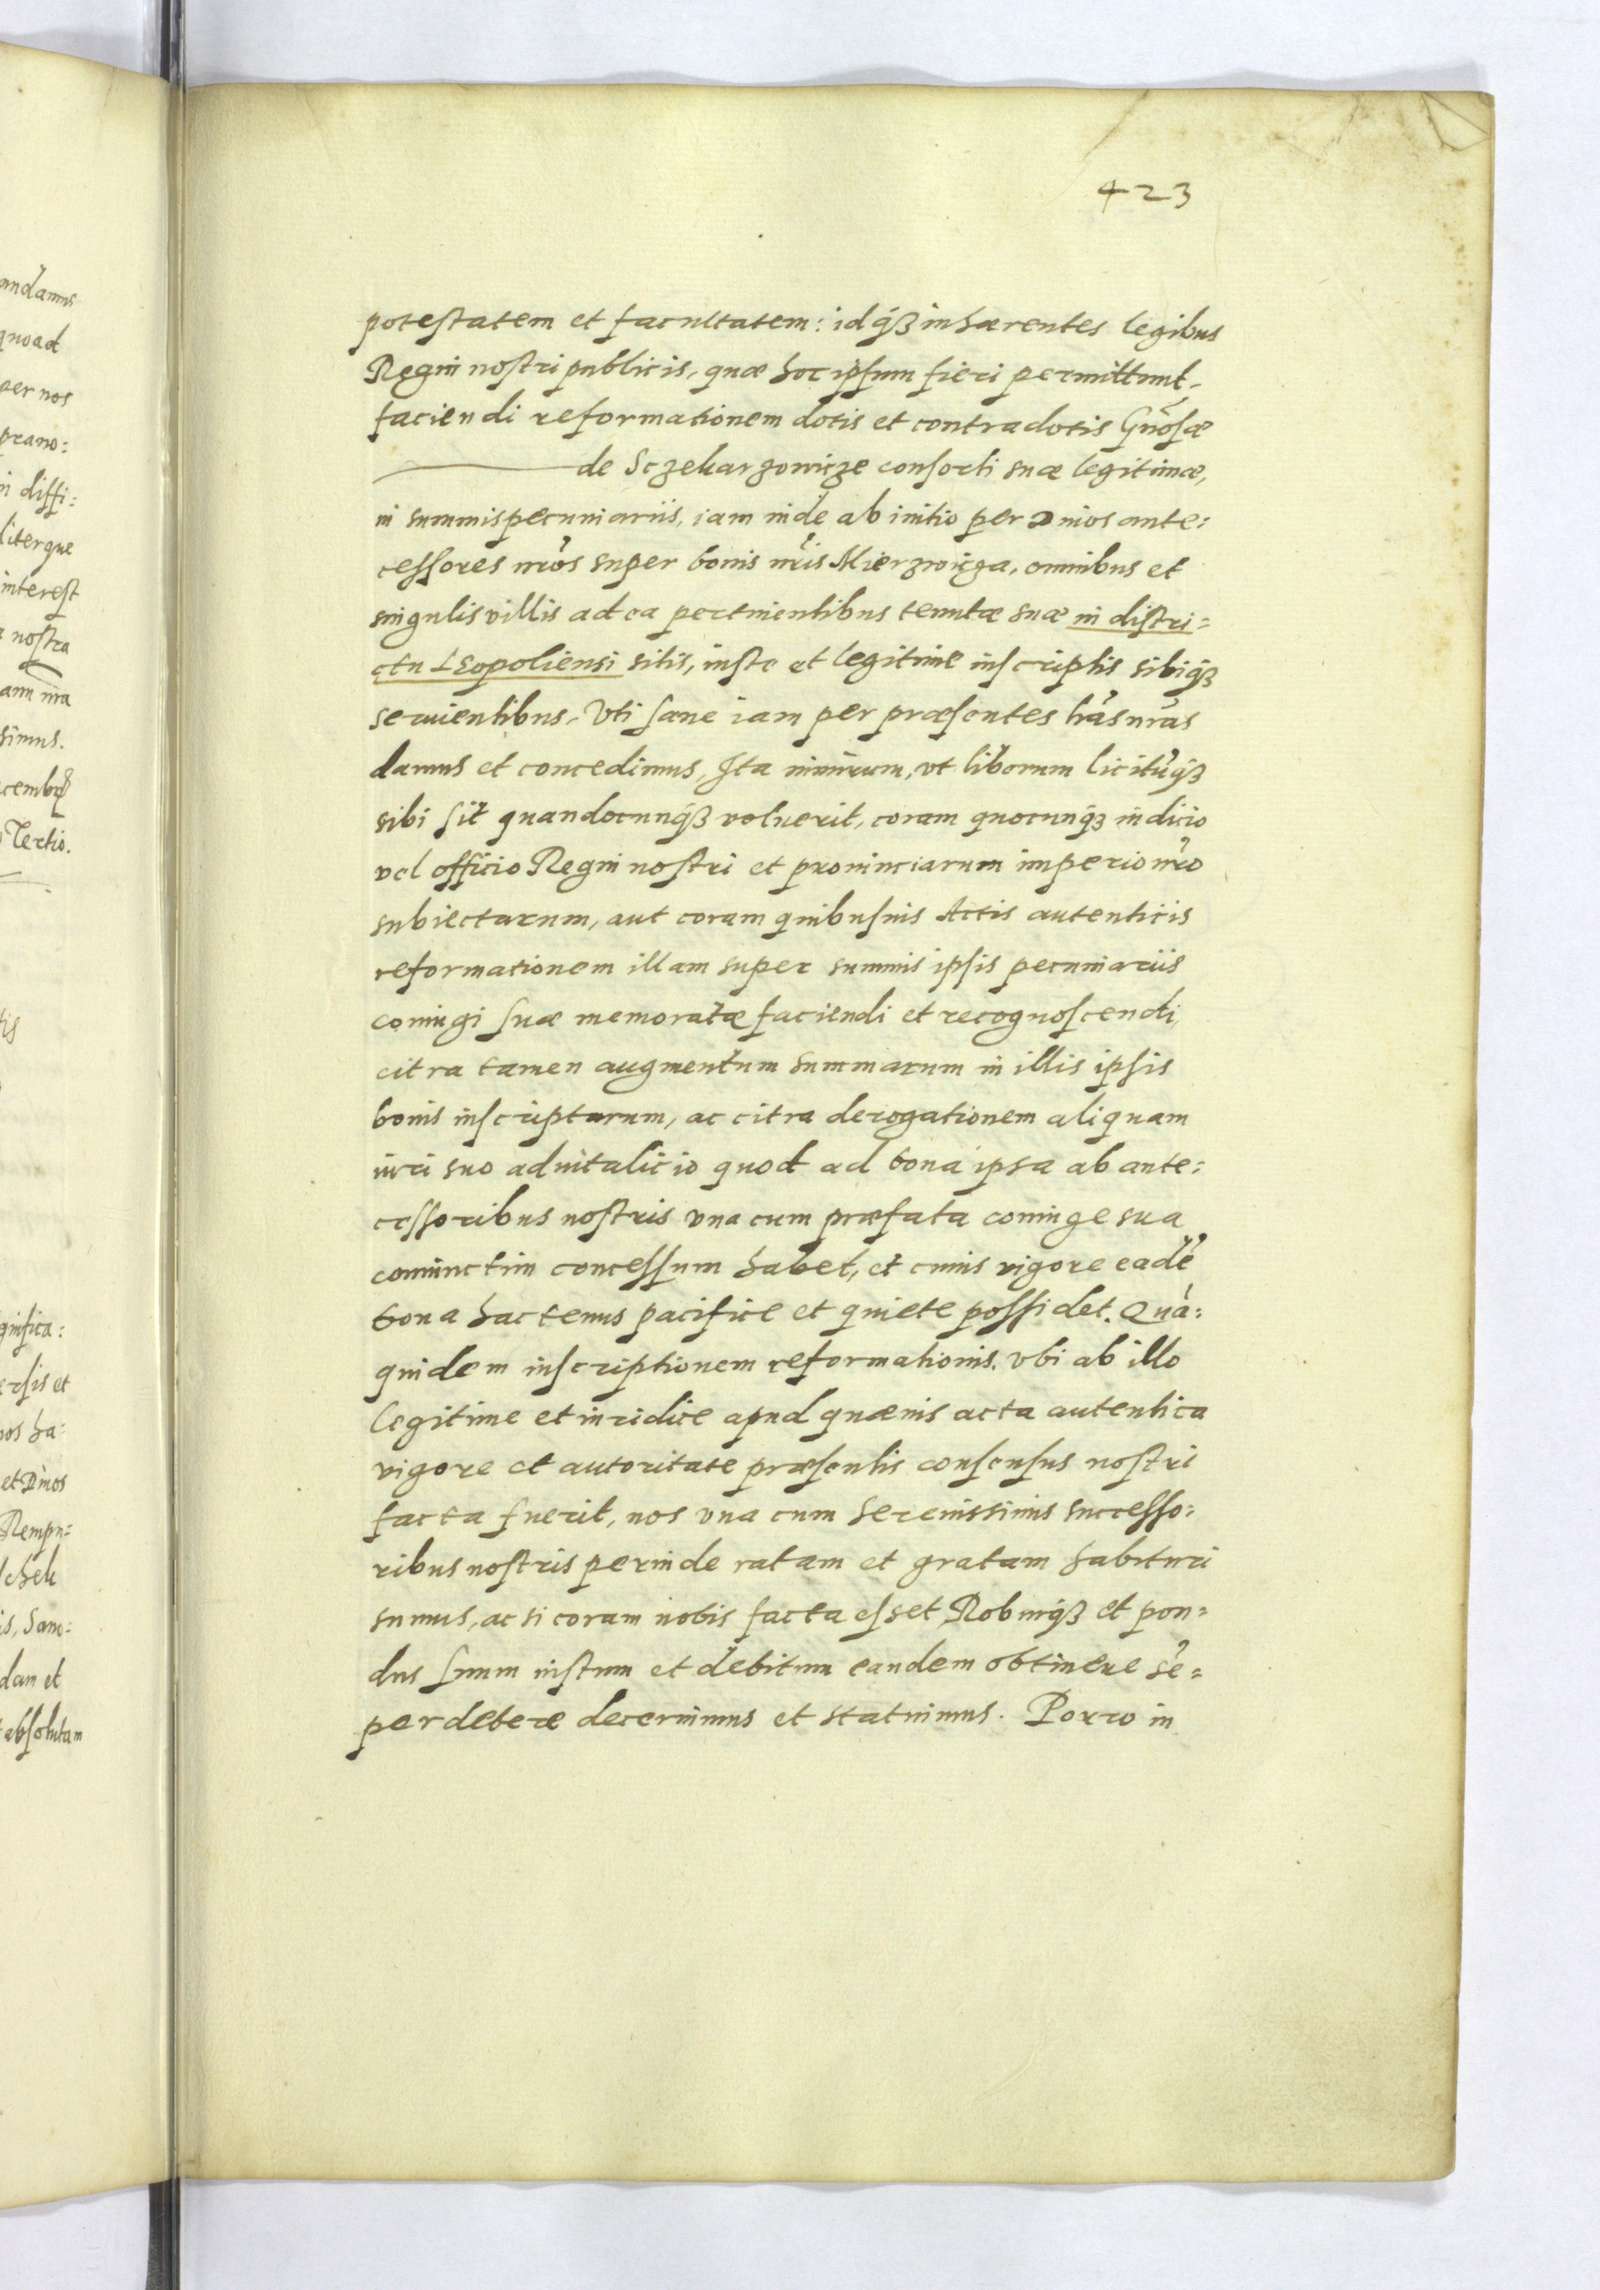 423
potestatem et facultatem: idq́ꝫ inhærentes legibus
Regni nostri publicis, quæ hoc ipsum fieri permittunt,
faciendi reformationem dotis et contradotis Gñosæ
de Sczekarzowicze consorti suæ legitimæ,
in summis pecuniariis, iam inde ab initio per
cessores nr̃os super bonis nr̃is Mierzwicza, omnibus et
singulis villis ad ea pertinentibus tenutæ suæ in distri=
ctu Leopoliensi sitis, iuste et legitime inscriptis sibiq́ꝫ
seruientibus, Vti sane iam per præsentes lr̃as nr̃as
damus et concedimus, Ita nimirum, vt liberum licitũq́ꝫ
sibi sit quandocunq́ꝫ voluerit, coram quocunq́ꝫ iudicio
vel officio Regni nostri et prouinciarum imperio nr̃o
subiectarum, aut coram quibusuis Actis autenticis
reformationem illam super summis ipsis pecuniariis
coniugi suæ memoratæ faciendi et recognoscendi,
citra tamen augmentum summarum in illis ipsis
bonis inscriptarum, ac citra derogationem aliquam
iuri suo aduitalicio quod ad bona ipsa ab ante=
cessoribus nostris vna cum præfata coniuge sua
coniunctim concessum habet, et cuius vigore eadẽ
bona hactenus pacifice et quiete possidet. Quã=
quidem inscriptionem reformationis, vbi ab illo
legitime et iuridice apud quæuis acta autentica
vigore et autoritate præsentis consensus nostri
facta fuerit, nos vna cum Serenissimis successo=
ribus nostris perinde ratam et gratam habituri
sumus, ac si coram nobis facta esset, Roburq́ꝫ et pon=
dus suum iustum et debitum eandem obtinere sẽ=
per debere decernimus et statuimus. Porro in